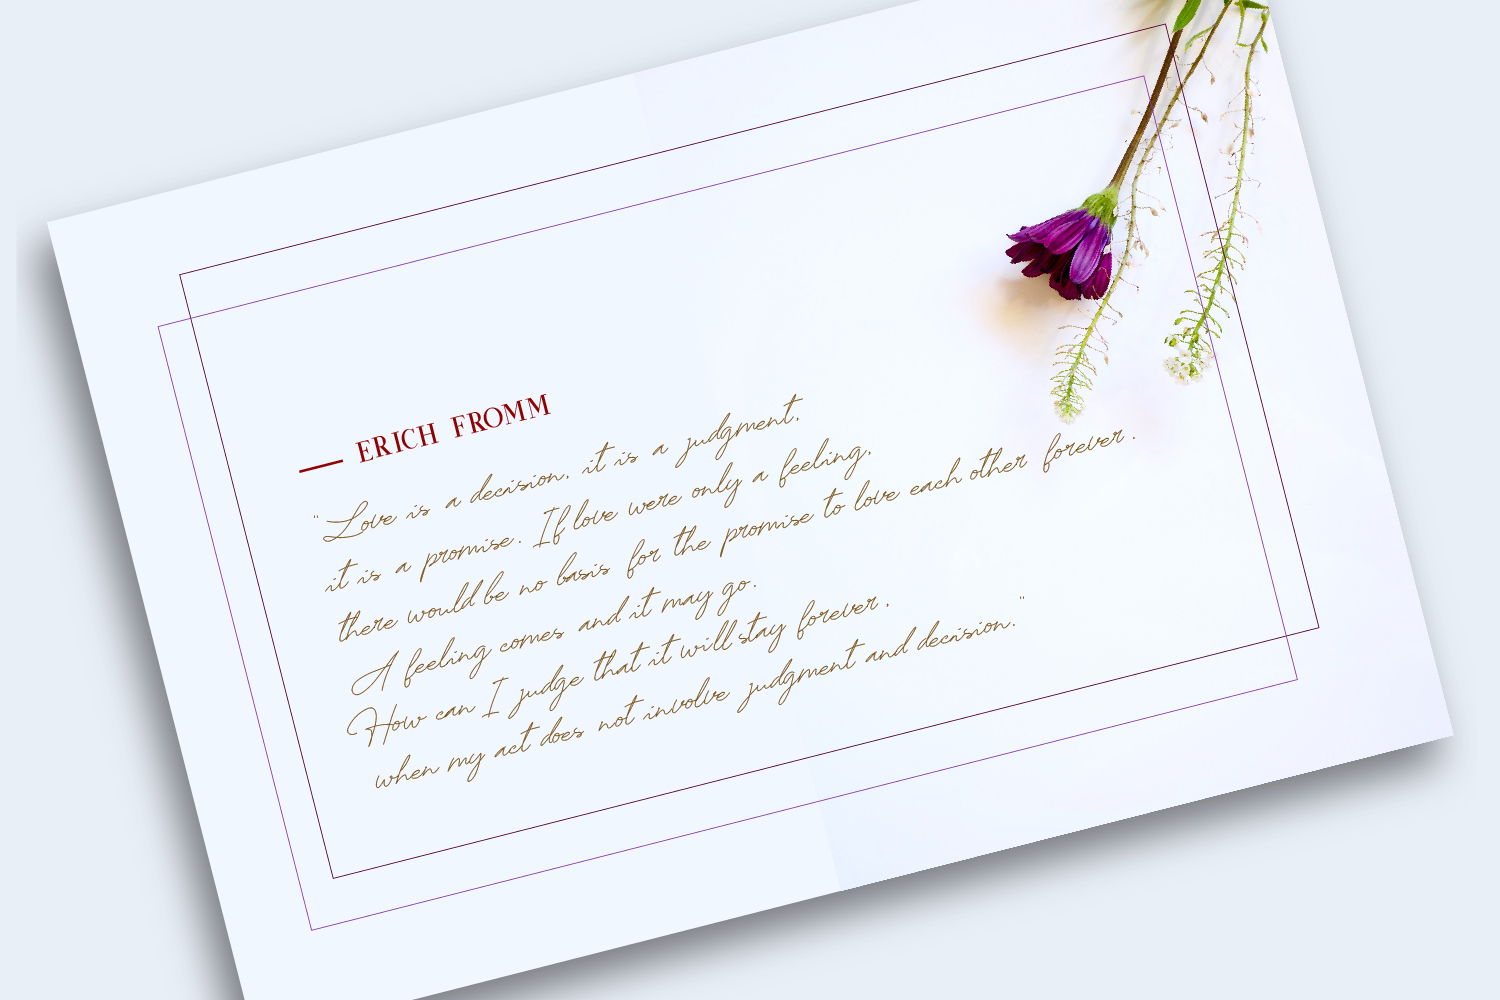 — ERICH FROMM
"Love is a decision, it is a judgment,
it is a promise. If love were only a feeling,
there would be no basis for the promise to love each other forever.
A feeling comes and it may go.
How can I judge that it will stay forever,
when my act does not involve judgment and decision."